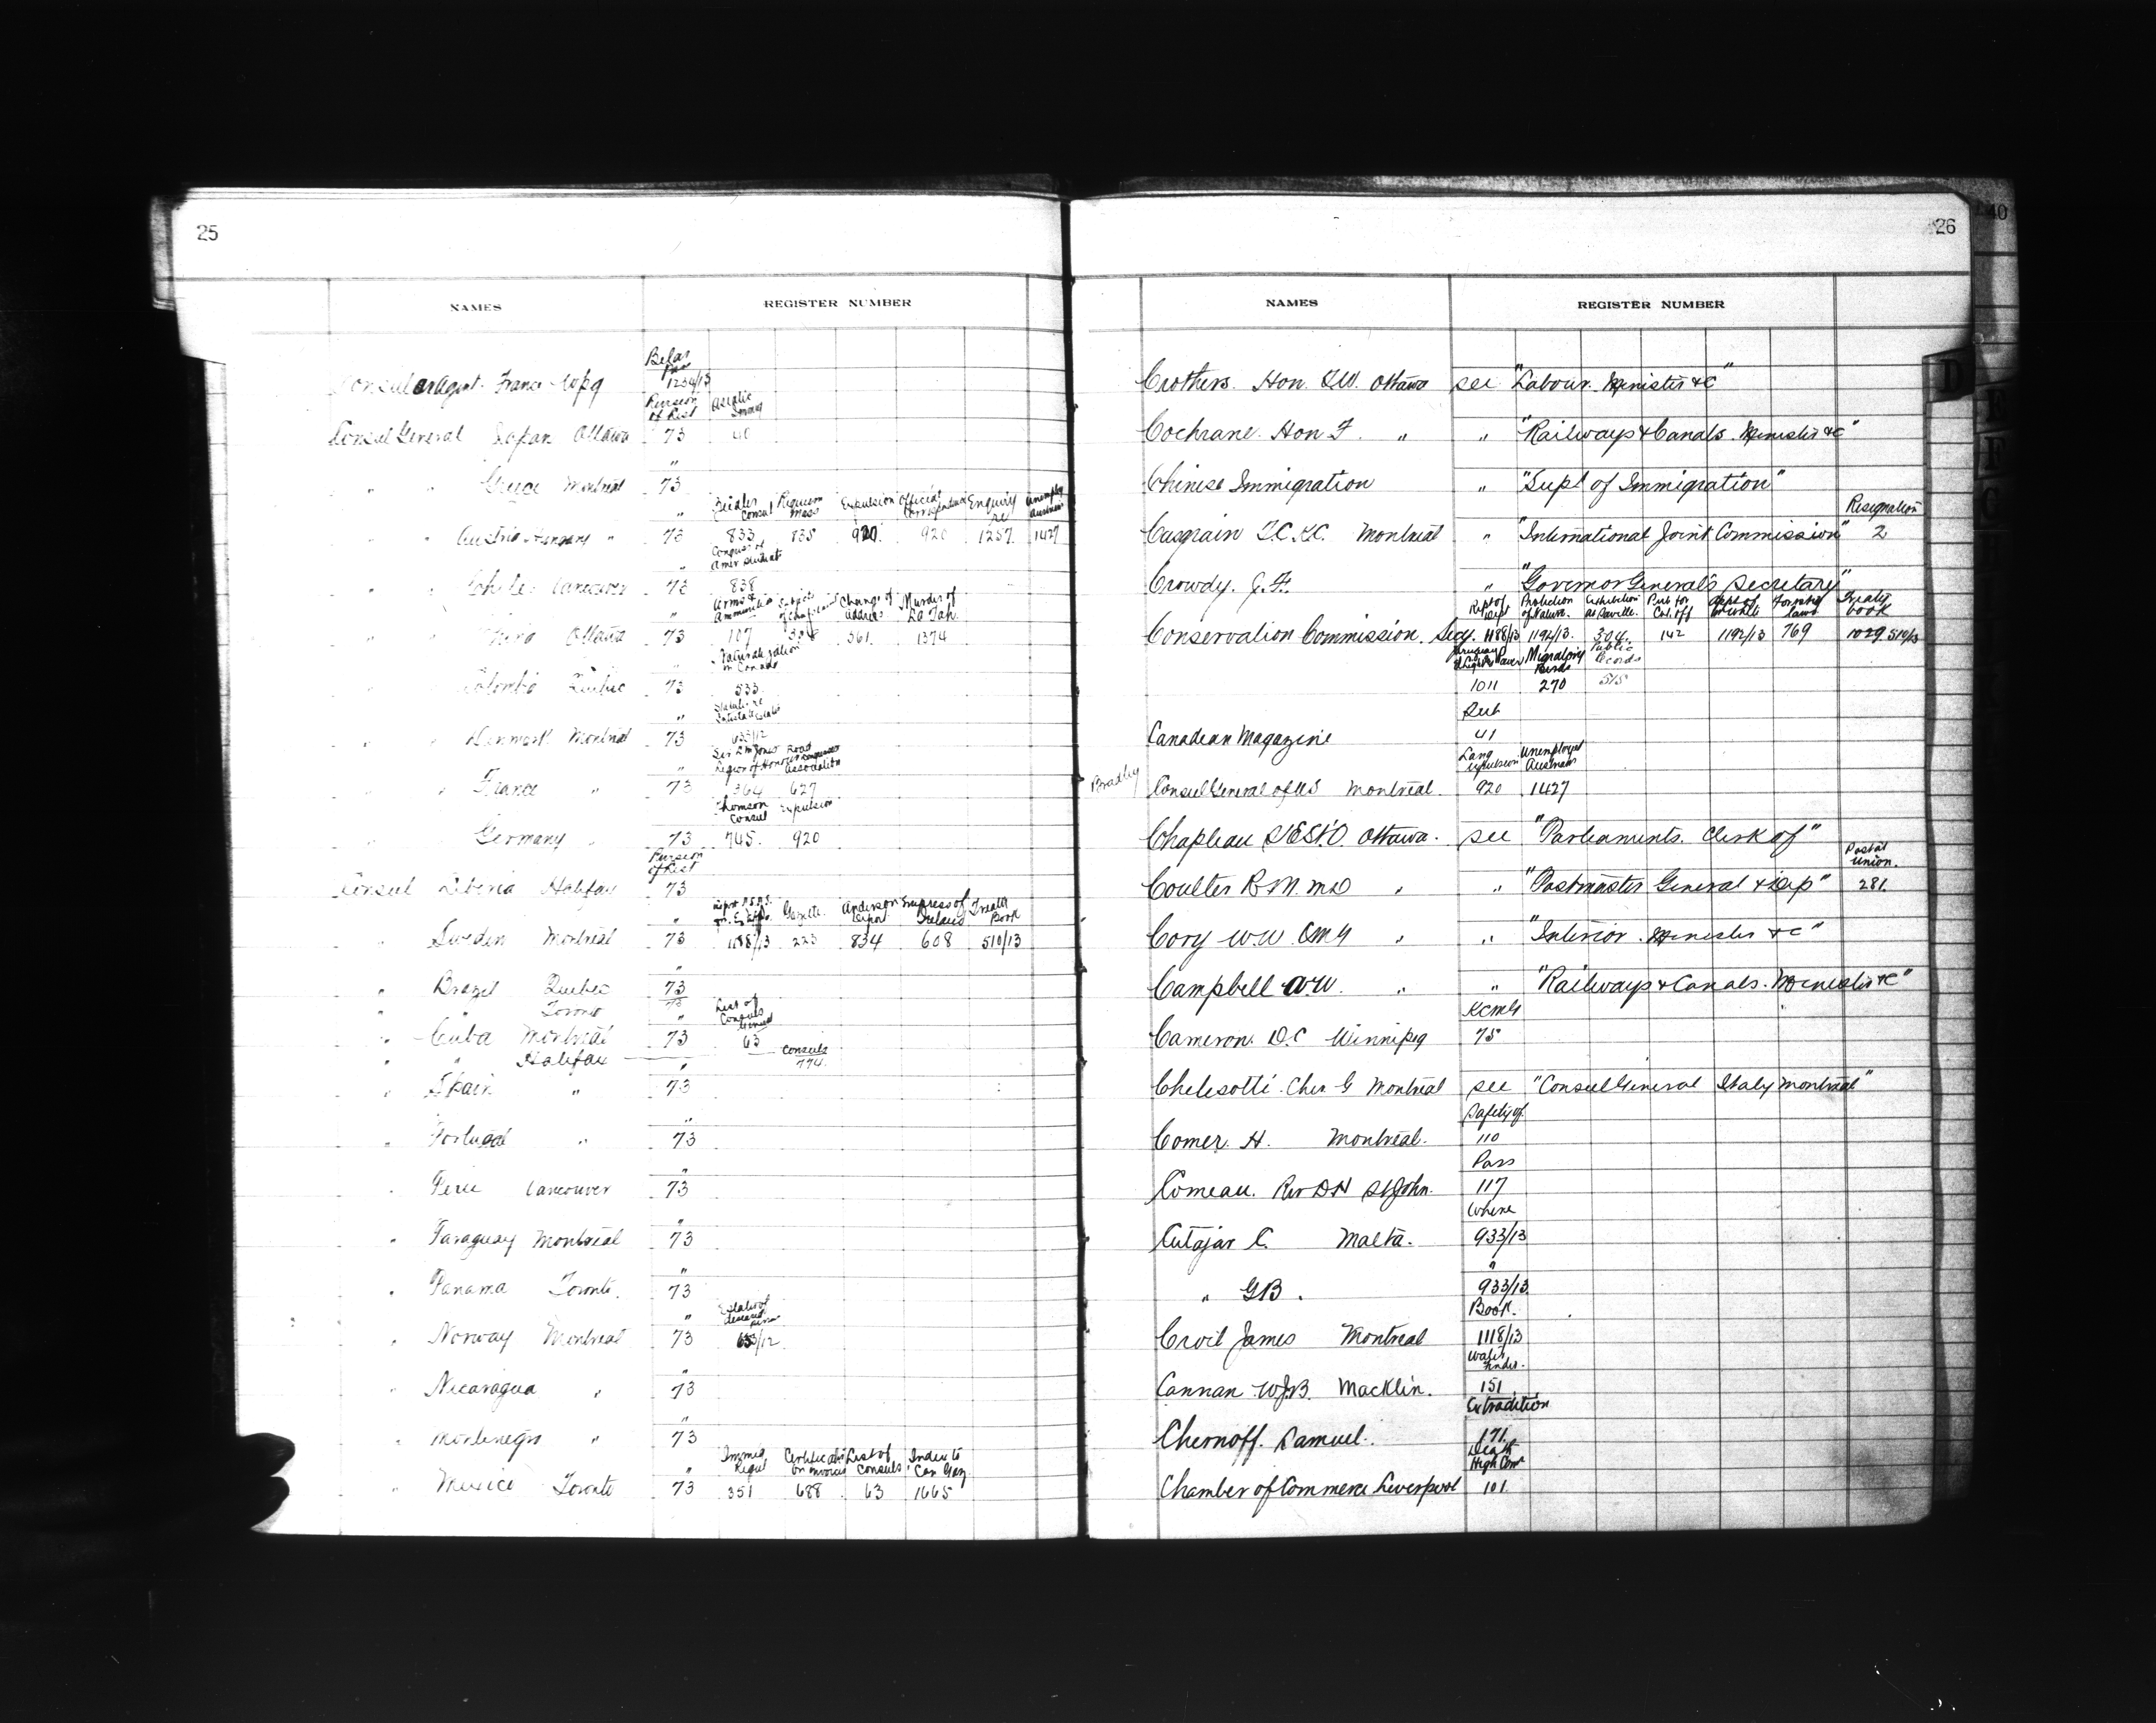 25
NAMES
REGISTER NUMBER
1254/13
Consular Agent. France Wpg
Revision of List Asiatic
Consul General Japan Ottawa 73 40
"
" " Greece Montreal 73
" Consul Requiem Mass Expulsion Official Correspondence Enquiry re Unemploy Austrians
" " Austria-Hungary " 73 833 835 920 920 1257 1427
" Amer Students
" " Chile Vancouver 73 838
" Arms & Ammunition Subjects Change of address Murder of
" " China Ottawa 73 107 361 1374
" Naturalization in Canada
" " Colombia Quebec 73 533
"
" " Denmark Montreal 73 633/12
" Legion of Honour Road Association
" " France " 73 364 627
Thomson Consul Expulsion
" " Germany " 73 745 920
Revision of List
Consul Liberia Halifax 73
" Gazette Anderson Empress of Ireland Treaty Book
" Sweden Montreal 73 1188/13 223 834 608 510/13
"
" Brazil Quebec 73
" " Toronto
" List of Consuls General
" Cuba Montreal 73 63
" " Halifax Consuls 774
" Spain " 73
"
" Portugal " 73
"
" Peru Vancouver 73
"
" Paraguay Montreal 73
"
" Panama Toronto. 73
" Estates of deceased
" Norway Montreal 73 633/12
"
" Nicaragua " 73
"
" Montenegro " 73
" Immig Regul Certificate on invoices List of Consuls Index to Can Gaz.
" Mexico Toronto 73 351 688 63 1665
26
40
D
NAMES
REGISTER NUMBER
Crothers. Hon. T.W. Ottawa see "Labour. Minister &c"
Cochrane. Hon F. " " "Railways & Canals. Minister &c"
Chinese Immigration " "Supt of Immigration"
Resignation
Casgrain T.C. K.C. Montreal " "International Joint Commission" 2
Crowdy. J.F. " "Governor General's Secretary"
Rept of Dept Protection of Nature. Exhibition Pub for Col. off Treaty book
Conservation Commission. Secy. 1188/13 1192/13. 304. 142 1192/13 769 1029. 510/13
Uruguay Migratory Birds Public Records
1011 270 515
Pub
Canadian Magazine 41
Lang expulsion Unemployed Austrians
Bradley Consul General of US Montreal. 920 1427
Chapleau Ottawa. see "Parliaments. Clerk of"
Postal Union.
Coulter R.M. MD " " "Postmaster General & Dep" 281
Cory W.W. CMG " " "Interior. Minister &c"
Campbell A.W. " " "Railways & Canals. Minister &c"
KCMG
Cameron. D.C Winnipeg 75
Chelesotti. Chev G Montreal see "Consul General Italy Montreal"
Safety of
Comer H. Montreal. 110
Pass
Comeau. Rev DH St John. 117
Where
Cutajar C. Malta. 933/13
"
" GB. 933/13
Book.
Croil James Montreal 1118/13
Water Finder.
Cannan W.J.B. Macklin. 151
Extradition
Chernoff. Samuel. 171.
Death High Com
Chamber of Commerce Liverpool 101